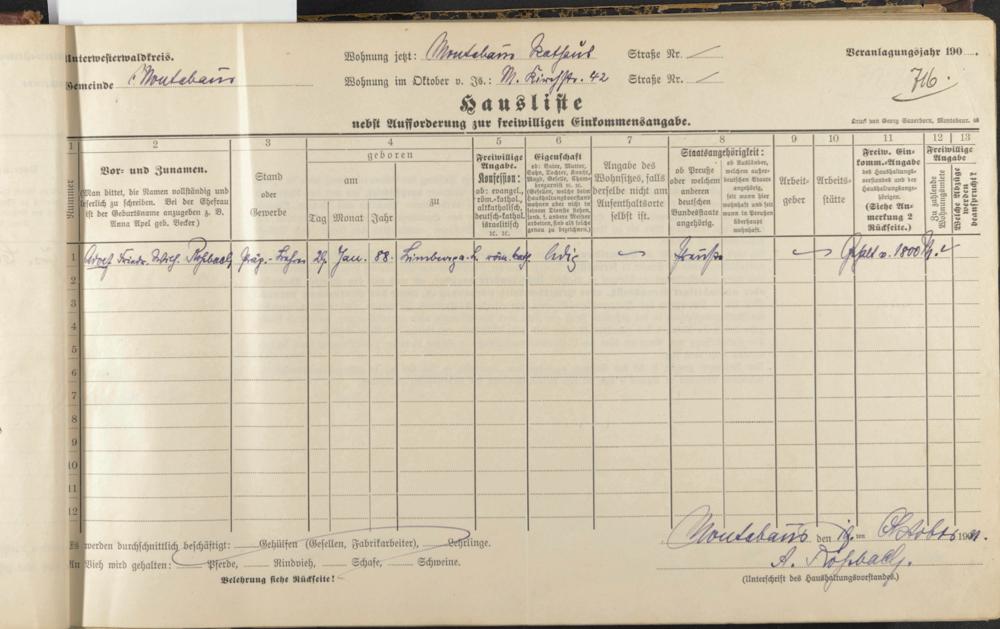 Unterwesterwaldkreis.
Wohnung jetzt: Montabaur Rathaus Straße Nr. /
Veranlagungsjahr 190
Gemeinde Montabaur
Wohnung im Oktober v. Js.: M. Kirchstr. 42 Straße Nr. /
716.
Hausliste
nebst Aufforderung zur freiwilligen Einkommensangabe.
Druck von Georg Sauerborn, Montabaur.
1 2 3 4 5 6 7 8 9 10 11 12 13
Nummer
Vor- und Zunamen.
(Man bittet, die Namen vollständig und
leserlich zu schreiben. Bei der Ehefrau
ist der Geburtsname anzugeben z. B.
Anna Apel geb. Becker)
Stand
oder
Gewerbe
geboren
am
Tag Monat Jahr
zu
Freiwillige
Angabe.
Konfession:
ob: evangel.,
röm.-kathol.,
altkatholisch,
deutsch-kathol.
israelitisch
ꝛc. ꝛc.
Eigenschaft
ob: Vater, Mutter,
Sohn, Tochter, Knecht,
Magd, Geselle, Zimmer-
Angabe des
Wohnsitzes, falls
derselbe nicht am
Aufenthaltsorte
selbst ist.
Staatsangehörigkeit:
ob Preuße
oder welchem
anderen
deutschen
Bundesstaate
angehörig.
ob Ausländer,
welchem außer-
deutschen Staate
angehörig,
seit wann hier
wohnhaft und seit
wann in Preußen
überhaupt
wohnhaft.
Arbeit-
geber
Arbeits-
stätte
Freiw. Ein-
komm.-Angabe
des Haushaltungs-
vorstandes und der
Haushaltungsange-
hörigen.
(Siehe An-
merkung 2
Rückseite.)
Freiwillige
Angabe
Zu zahlende
Wohnungsmiete
Welche Abzüge
werden
beansprucht?
1 Adolf Friedr. Roßbach Präp.-Lehrer 29. Jan. 88. Limburg a. L. röm. kath. ledig – Preuße – Gehalt v. 1800 M.
2
3
4
5
6
7
8
9
10
11
12
Es werden durchschnittlich beschäftigt: Gehülfen (Gesellen, Fabrikarbeiter), Lehrlinge.
An Vieh wird gehalten: Pferde, Rindvieh, Schafe, Schweine.
Belehrung siehe Rückseite!
Montabaur den Oktober 19
A. Roßbach.
(Unterschrift des Haushaltungsvorstandes.)